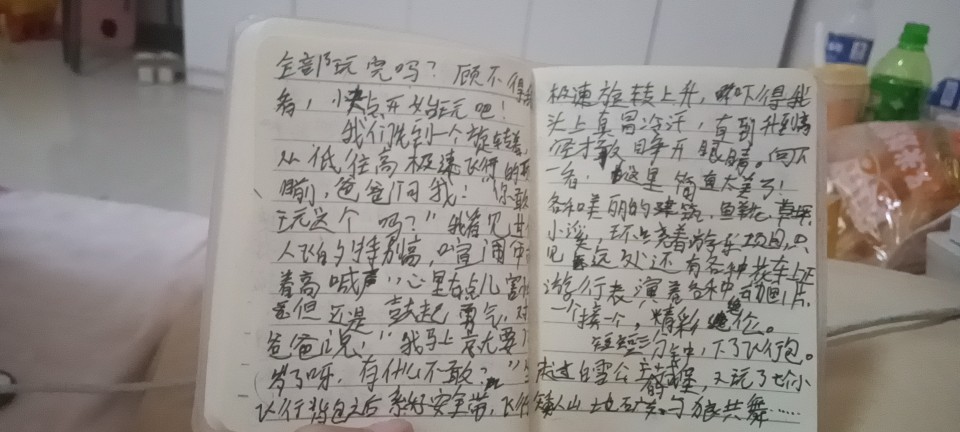 全部玩完吗？顾不得
看，快点开始玩吧！
我们先到一个旋转着，
从低往高极速飞行的
前，爸爸问我：“你敢
玩这个吗？”我看见进
人飞的特别高，喧闹中
着高喊声“心里有点儿害
但还是鼓起勇气，对
爸爸说，“我马上就要
岁了呀，有什么不敢？”
飞行背包之后系好安全带，飞行
极速旋转上升，吓得我
头上直冒冷汗，直到升到高
空才敢睁开眼睛。向下
一看，这里简直太美了！
各种美丽的建筑，鲜花，草坪
小溪，环绕着游乐项目，只
见远处还有各种花车正
游行表演着各种动画片，
一个接一个，精彩绝伦。
短短三分钟，下了飞行包。
走过白雪公主城堡，又玩了七个小
矮人山地矿车，与狼共舞……